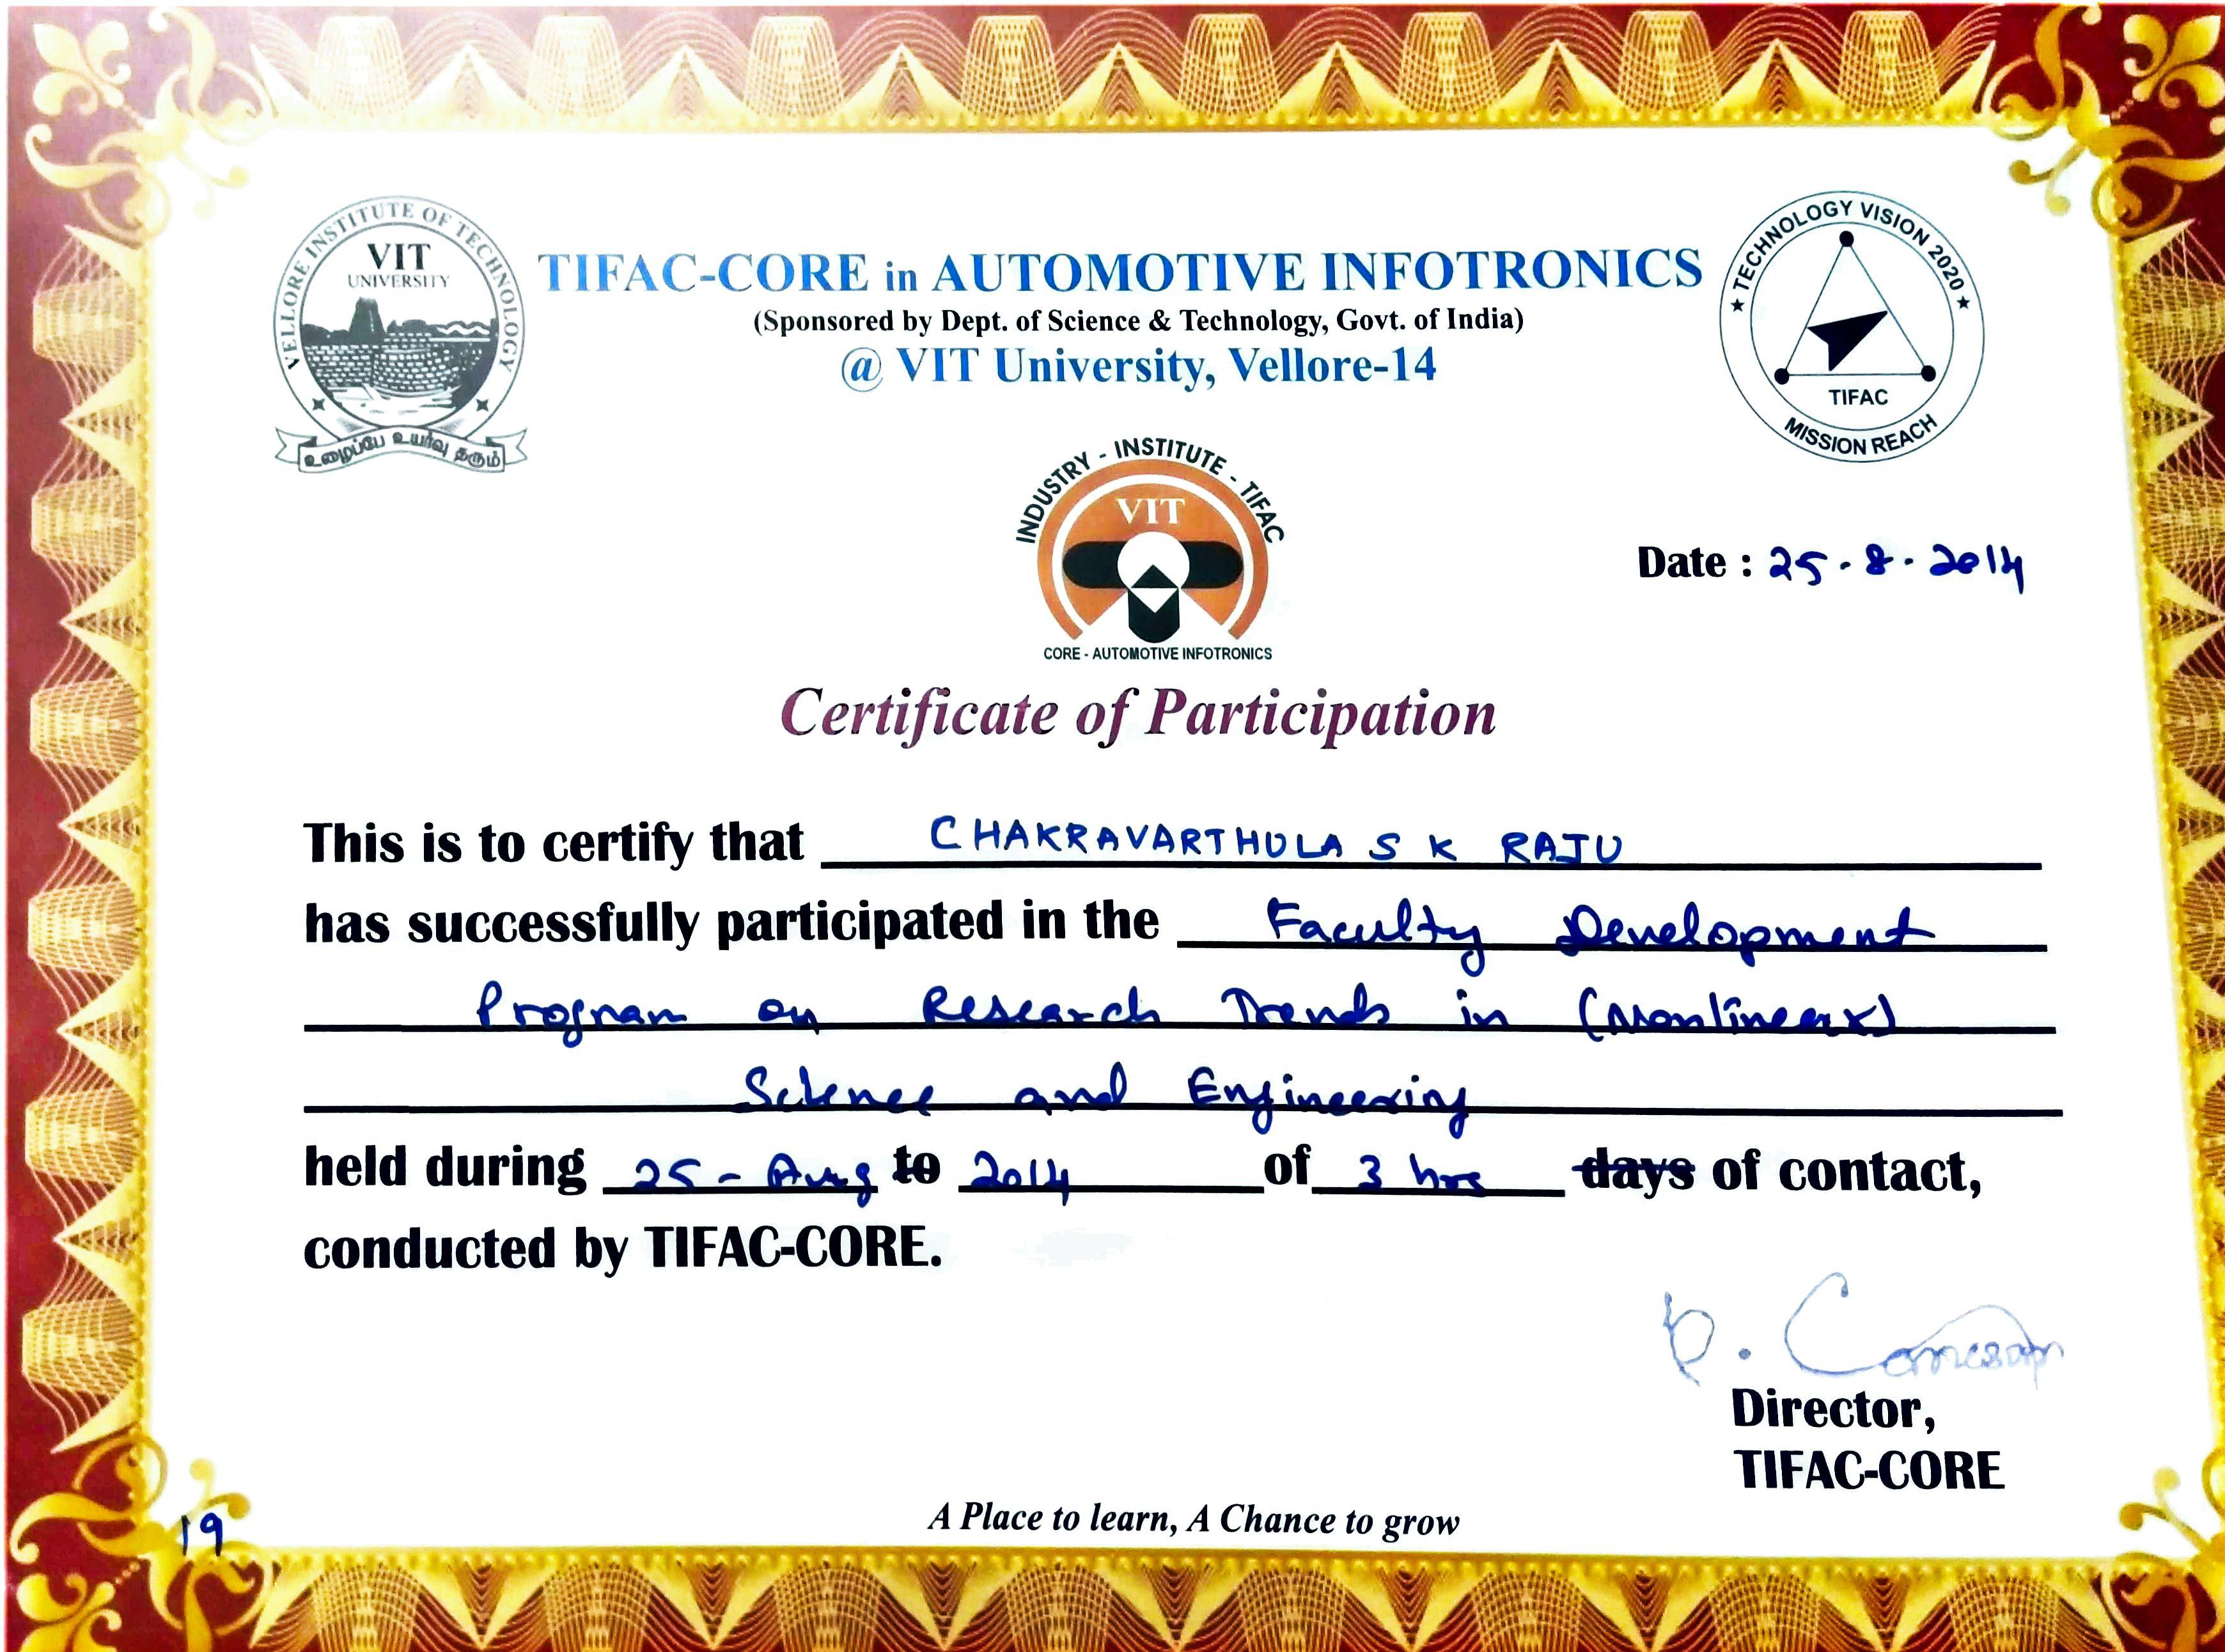 VELLORE INSTITUTE OF TECHNOLOGY
VIT
UNIVERSITY
உழைப்பே உயர்வு தரும்
TIFAC-CORE in AUTOMOTIVE INFOTRONICS
(Sponsored by Dept. of Science & Technology, Govt. of India)
@ VIT University, Vellore-14
★ TECHNOLOGY VISION 2020 ★
TIFAC
MISSION REACH
INDUSTRY - INSTITUTE - TIFAC
VIT
CORE - AUTOMOTIVE INFOTRONICS
Date : 25-8-2014
Certificate of Participation
This is to certify that CHAKRAVARTHULA S K RAJU
has successfully participated in the Faculty Development
Program on Research Trends in (Nonlinear)
Science and Engineering
held during 25-Aug to 2014 of 3 hrs days of contact,
conducted by TIFAC-CORE.
Director,
TIFAC-CORE
A Place to learn, A Chance to grow
19